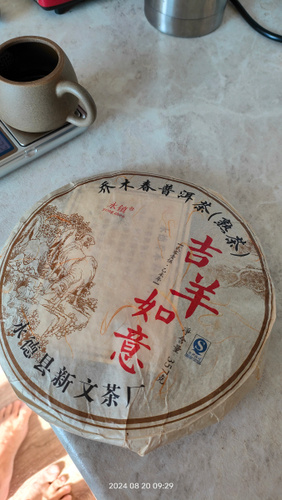 乔木春普洱茶(熟茶)
吉羊
如意
净含量:357克
永德县新文茶厂
2024 08 20 09:29